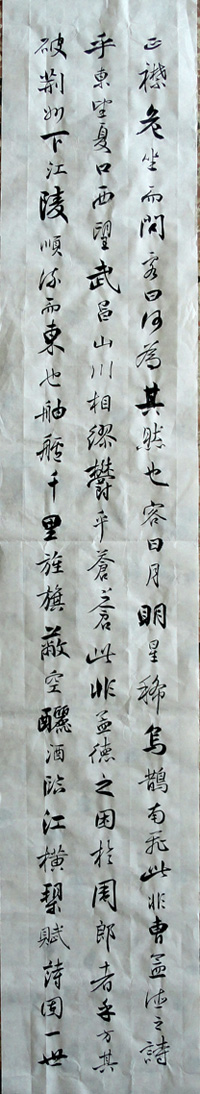 正襟危坐而問客曰何為其然也客曰月明星稀烏鵲南飛此非曹孟德之詩
乎東望夏口西望武昌山川相繆鬱乎蒼蒼此非孟德之困於周郎者乎方其
破荊州下江陵順流而東也舳艫千里旌旗蔽空釃酒臨江橫槊賦詩固一世